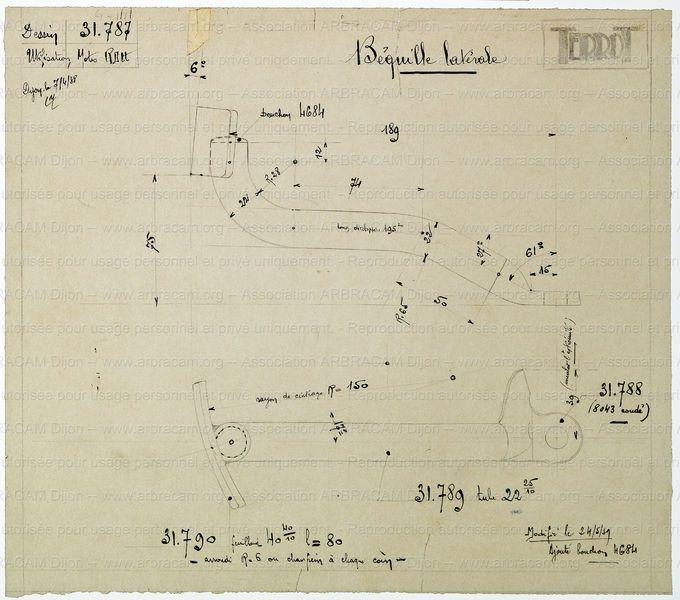 Dessin 31.787
Utilisation Moto
Dijon le 7/4/38
Béquille latérale
TERROT
6
bouchon 4684
189
12
R.28
74
75
22
R.65
51
61
15
rayon de cintrage R = 150
39
31.788
(8043 soudé)
31.789 tube 22 25/10
31.790 feuillard 40 40/10 l = 80
arrondi R=6 ou chanfrein à chaque coin
Modifié le 24/5/39
Ajouté bouchon 4684
Reproduction autorisée pour usage personnel et privé uniquement. – Association ARBRACAM Dijon – www.arbracam.org